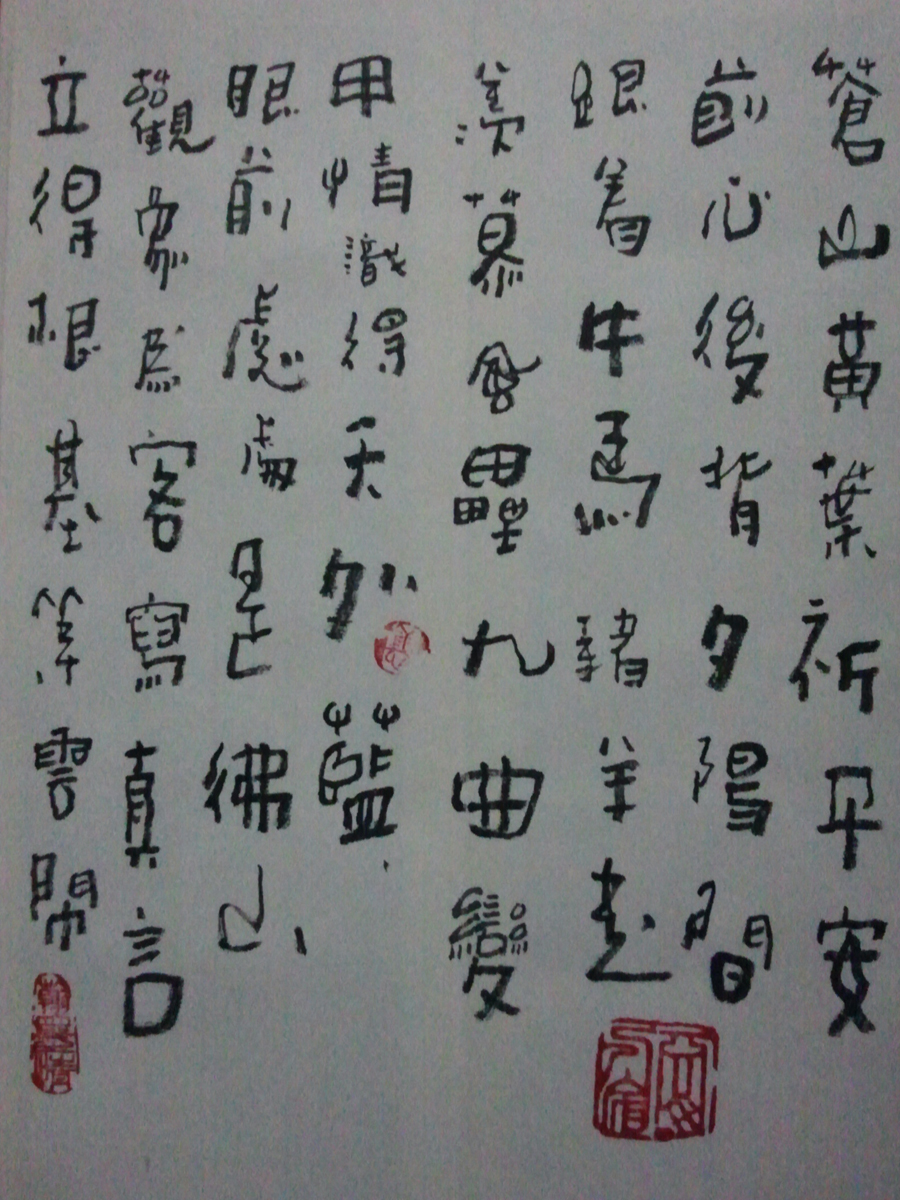 蒼山黃葉祈平安
前心後背夕陽間
跟着牛馬豬羊走
羨慕風疊九曲變
甲情識得天外藍
眼前處處是佛山
觀象為客寫真言
立得根基等雲開